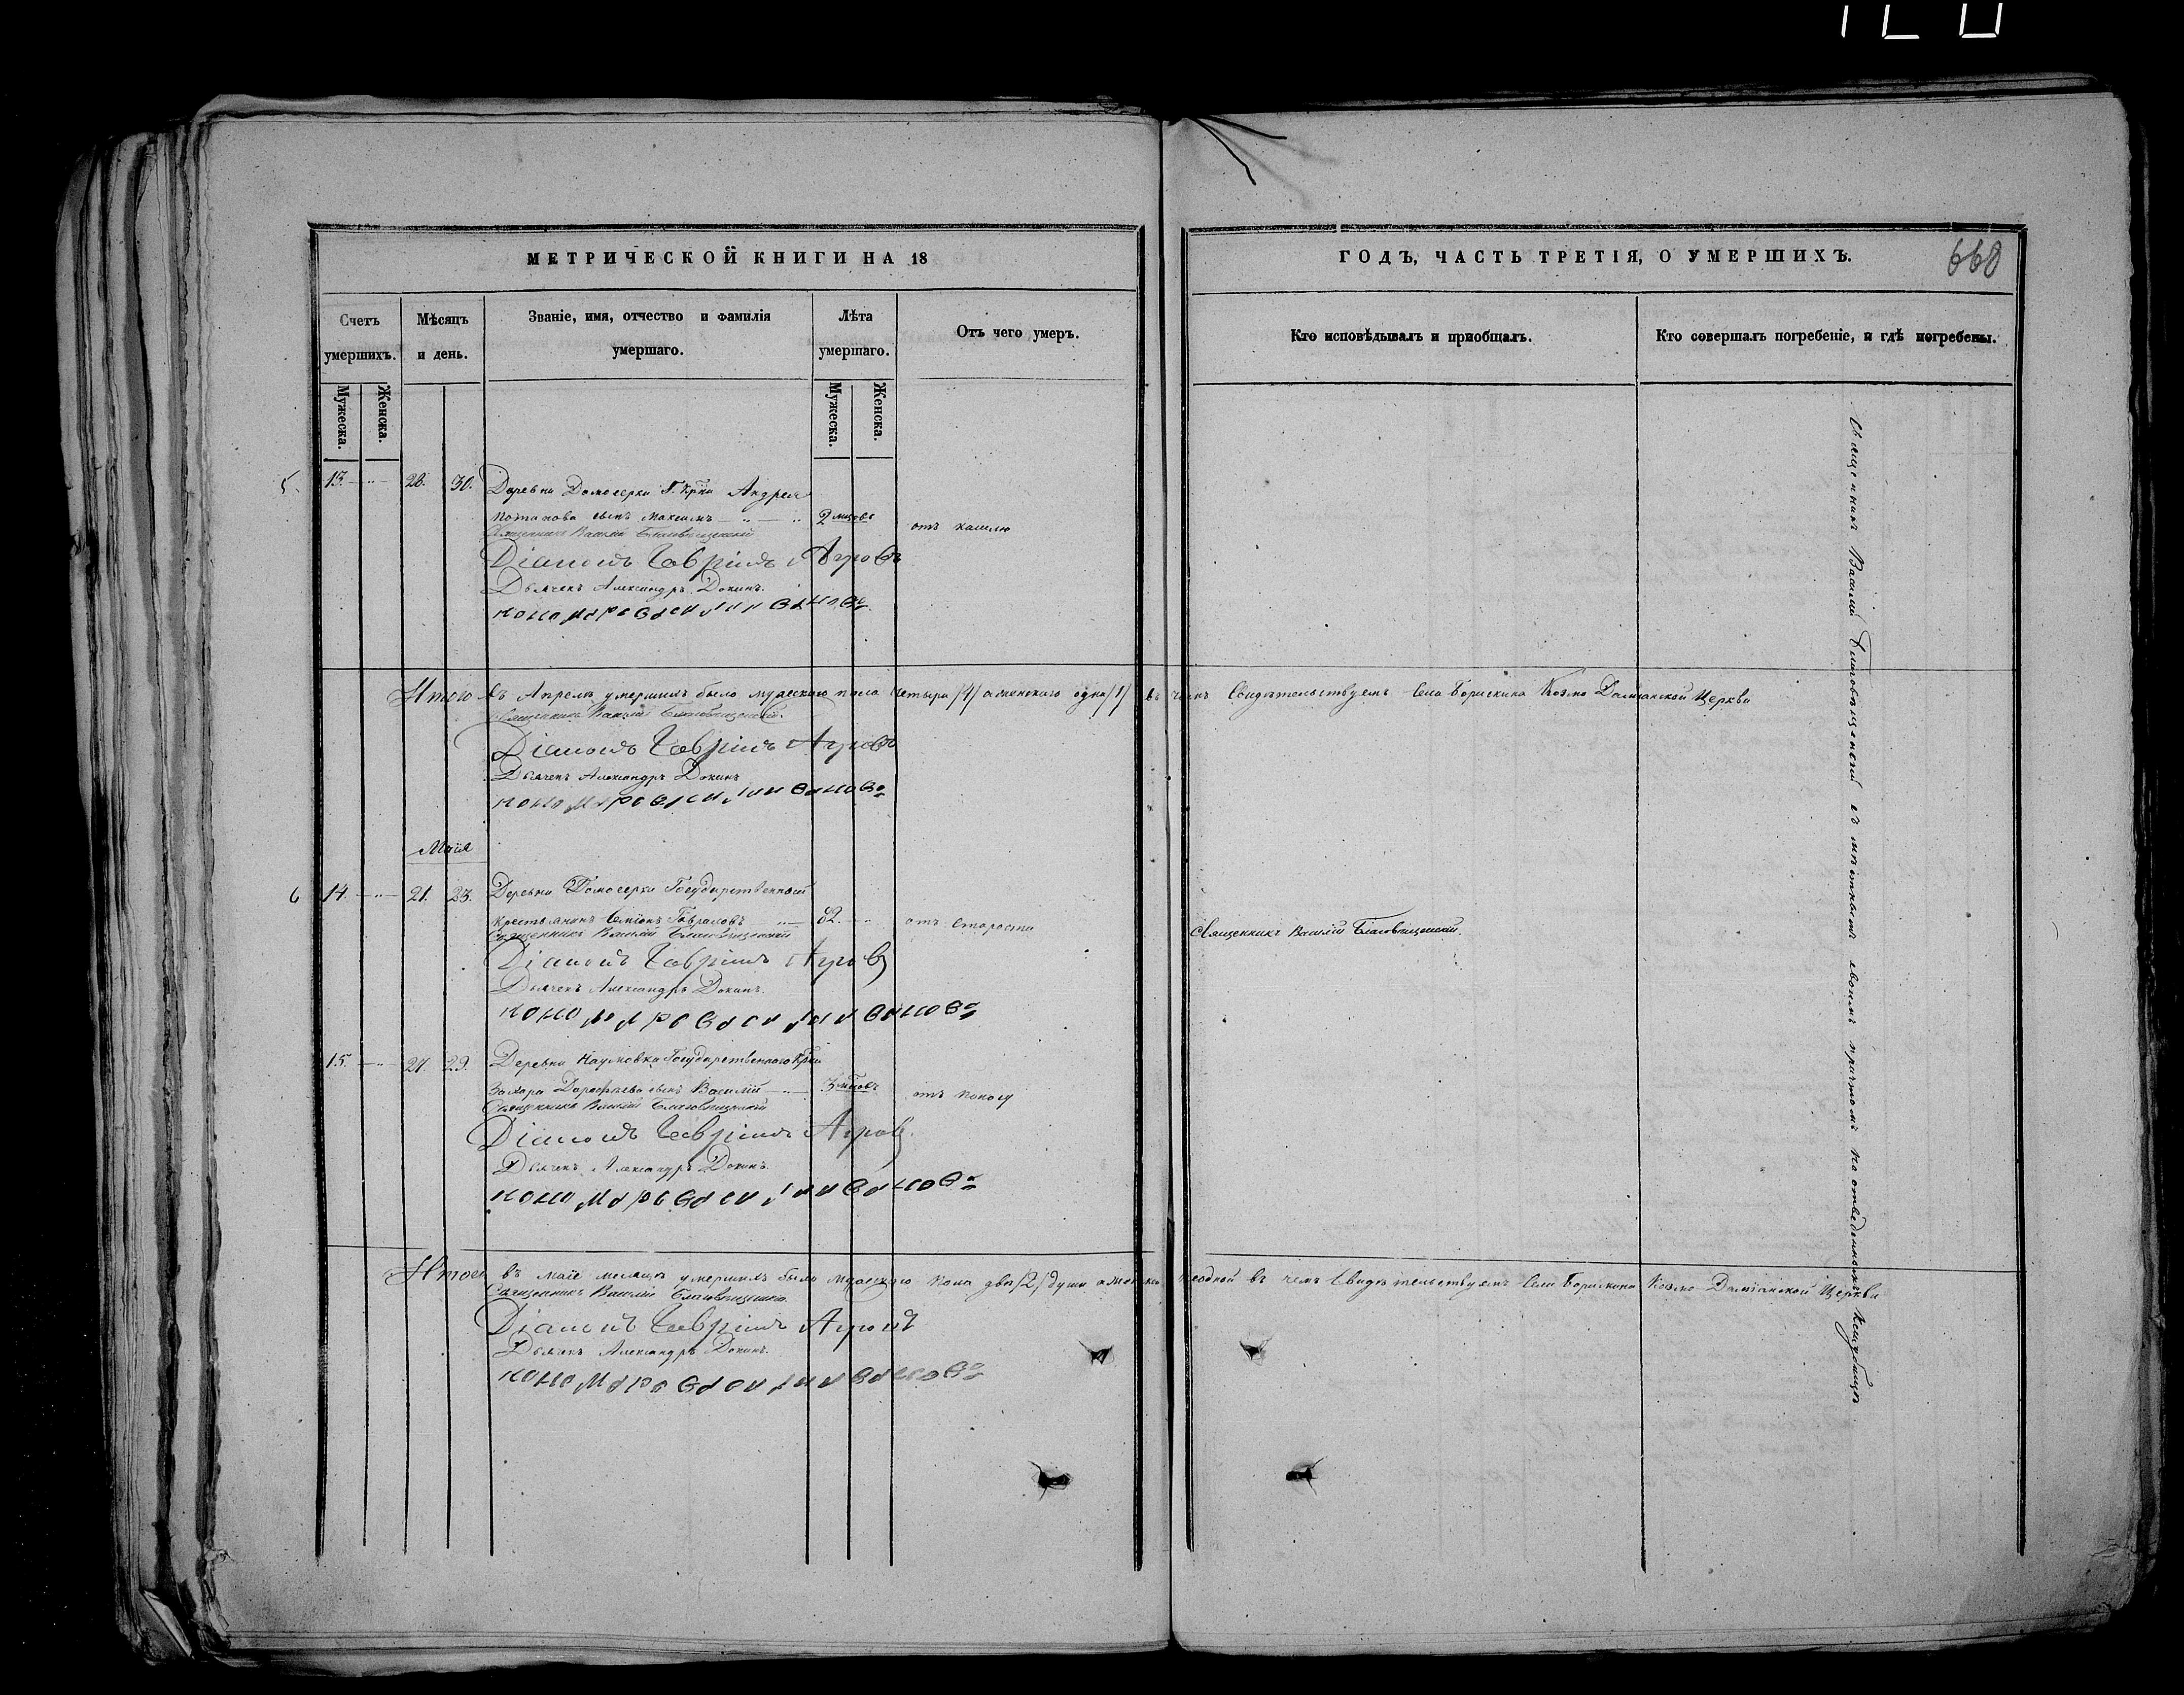 МЕТРИЧЕСКОЙ КНИГИ НА 18
ГОДЪ, ЧАСТЬ ТРЕТІЯ, О УМЕРШИХЪ.
668
Счетъ умершихъ.
Мѣсяцъ и день.
Званіе, имя, отчество и фамилія умершаго.
Лѣта умершаго.
Отъ чего умеръ.
Кто исповѣдывалъ и приобщалъ.
Кто совершалъ погребеніе, и гдѣ погребены.
Мужеска.
Женска.
Мужеска.
Женска.
5. 13. 28. 30. Деревни Домосерки Г. Крнн Андрея
Потапова сынъ Максимъ 2 мцовъ отъ кашлю
Священникъ Василій Благовѣщенскій
Діаконъ Гавріилъ Агровъ
Дьячекъ Александръ Докинъ.
Пономарь Василій Ивановъ
Итого въ Апрелѣ умершихъ было мужескаго пола четыре /4/ а женского одна /1/ въ чемъ Свидѣтельствуемъ Села Борискина Козмо Даміанской Церкви
Священникъ Василій Благовѣщенскій.
Діаконъ Гавріилъ Агровъ
Дьячекъ Александръ Докинъ
Пономарь Василій Ивановъ
Маія
6 14. 21. 23. Деревни Домосерки Государственный
крестьянинъ Симіонъ Гавриловъ 82. отъ старости
Священникъ Василій Благовѣщенскій
Священникъ Василій Благовѣщенскій.
Діаконъ Гавріилъ Агровъ
Дьячекъ Александръ Докинъ.
Пономарь Василій Ивановъ
15. 27. 29. Деревни Наумовка Государственного Крнн
Захара Дорофѣева сынъ Василій 3 мцовъ отъ поносу
Священникъ Василій Благовѣщенскій
Діаконъ Гавріилъ Агровъ.
Дьячекъ Александръ Докинъ.
Пономарь Василій Ивановъ
Итого въ маіе месяцѣ умершихъ было мужескаго пола двѣ /2/ души а женска неодной въ чемъ Свидѣтельствуемъ Села Борискина Козмо Даміанской Церкви
Священникъ Василій Благовѣщенскій.
Діаконъ Гавріилъ Агровъ
Дьячекъ Александръ Докинъ.
Пономарь Василій Ивановъ
Священникъ Василій Благовѣщенскій съ мѣстнымъ своимъ причтомъ на отведенномъ кладбищѣ